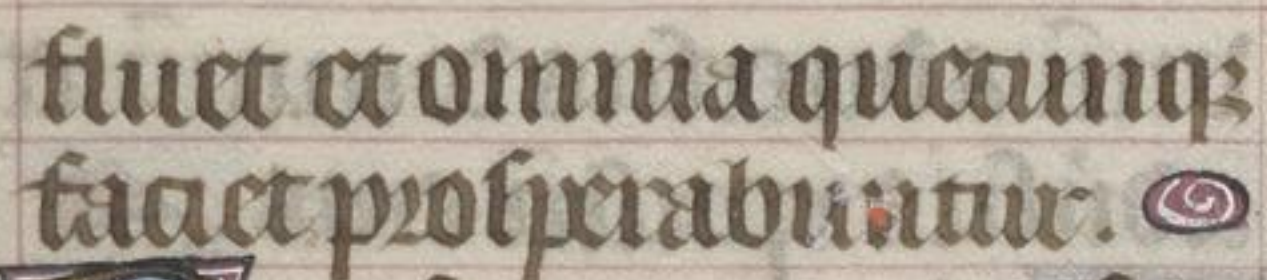 fluet et omnia quecunqꝫ
faciet prosperabuntur.